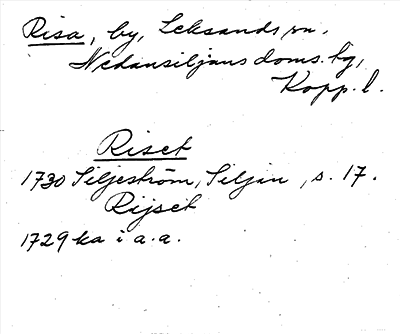 Risa, by, Leksands sn.
Nedansiljans doms. hg,
Kopp. l.
Riset
1730 Siljeström, Siljan, s. 17.
Rijset
1729 ka i a.a.